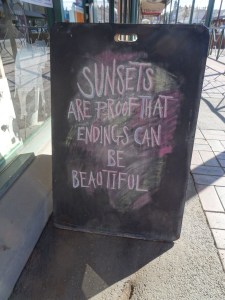 SUNSETS
ARE PROOF THAT
ENDINGS CAN
BE
BEAUTIFUL